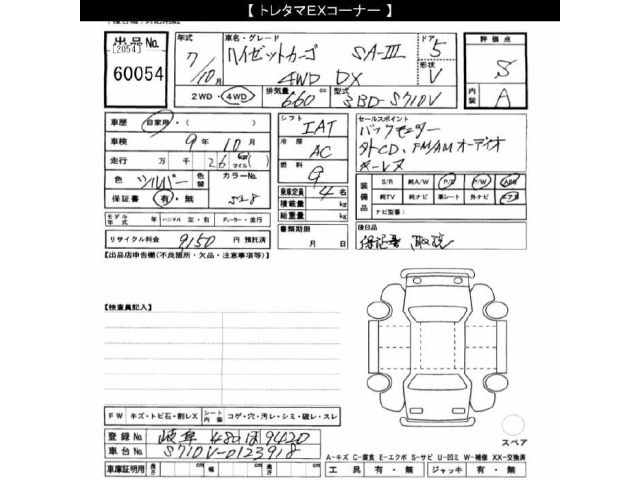 【 トレタマEXコーナー 】
出品No. 年式 車名・グレード ドア 評価点
[2054] 7 ハイゼットカーゴ SA-III 5
60054 /10月 4WD DX 形状 V S
2WD・4WD 排気量 660 cc 型式 3BD-S710V 内装 A
車歴 自家用・( ) シフト IAT セールスポイント
車検 9年 10月 冷房 AC バックモニター
走行 万 千 26 km マイル ( ) 燃料 G 外CD、FM/AMオーディオ
色 シルバー 色替 カラーNo. 乗車定員 4 名 キーレス
保証書 有・無 S28 積載量 kg
装備品 S/R 純A/W P/S P/W ABS
純TV 純ナビ 革シート 外ナビ エアB
ナビ型番:
モデル年式 年 ハンドル 左・右 ディーラー・並行 総重量 kg
リサイクル料金 9150 円 預託済 書類期限 月 日 後日品
保証書 取説
【出品店申告欄(不良箇所・欠品・注意事項等)】
【検査員記入】
FW キズ・トビ石・割レX シート内装 コゲ・穴・汚レ・シミ・破レ・スレ
登録No. 岐阜 480ほ9420
車台No. S710V-0123918
スペア
A-キズ C-腐食 E-エクボ S-サビ U-凹ミ W-補修 XX-交換済
車庫証明用 長さ cm 幅 cm 高さ cm 工具 有・無 ジャッキ 有・無